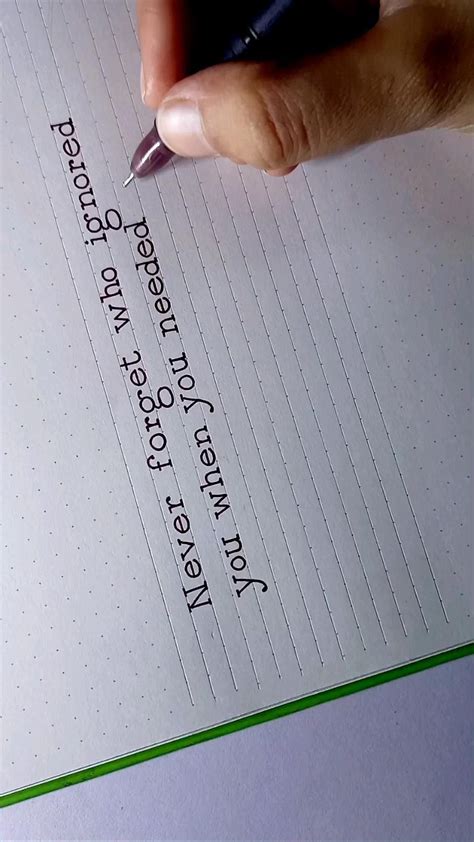 Never forget who ignored
you when you needed